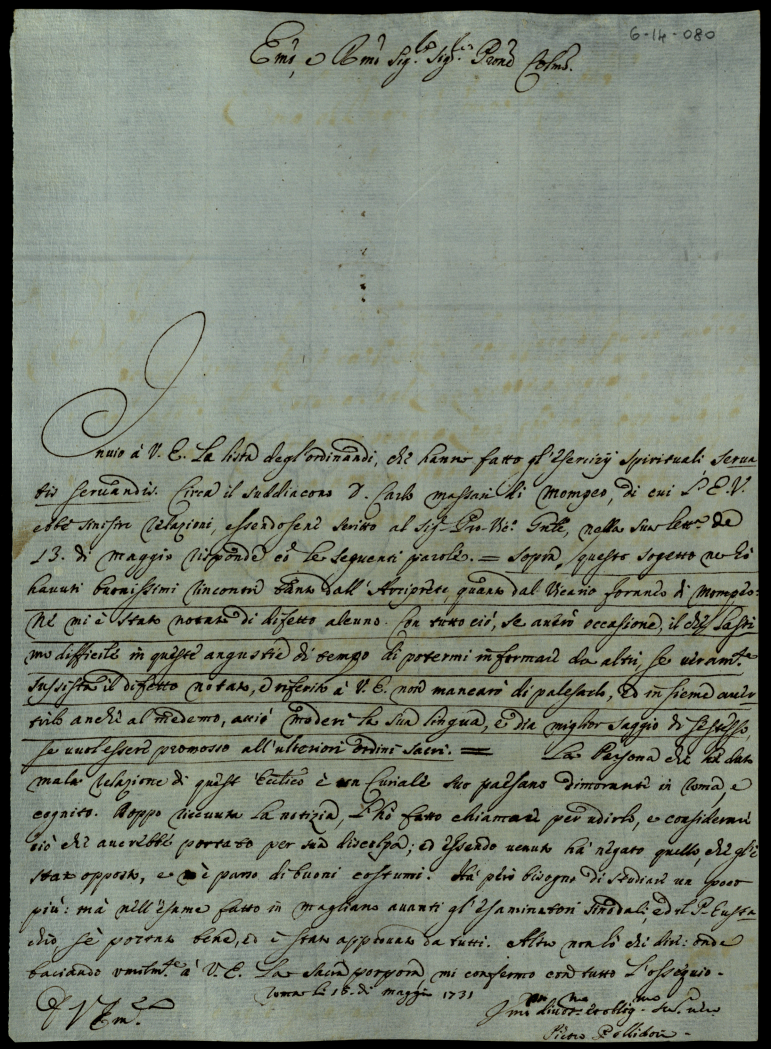 6-14-080
Emo, e Rmo Sig.r Sig.r Prone Colmo.
Invio à V. E. La lista degl'ordinandi, che hanno fatto gl'esercizij spirituali serua
tis seruandis. Circa il suddiacono D. Carlo massari di Mompeo, di cui l'E. V.
ebbe sinistre relazioni, essendosene scritto al Sig.r Pro-Vic.o Gnle, nella sua lett.a de
13. di maggio risponde cō le seguenti parole. = Sopra, questo sogetto ne hò
hauuti buonissimi rincontri tanto dall'Arciprete, quanto dal Vicario foraneo di Mompeo:
Nè mi è stato notato di difetto alcuno. Con tutto ciò, se auerò occasione, il che stimo
difficile in queste angustie di tempo di potermi informare da altri, se ueram.te
sussista il difetto notato, e riferito à V. E. non mancarò di palesarlo, ed insieme auer
tirlo anche al medemo, acciò moderi la sua lingua, e dia miglior saggio di se stesso,
se uuol essere promosso all'ulteriori ordini sacri. = La Persona che hà dato
mala relazione di quest' Ecclico è un Curiale suo paesano dimorante in roma, e
cognito. Doppo riceuuta la notizia, l'hò fatto chiamare per udirlo, e considerare
ciò che auerebbe portato per sua discolpa; ed essendo uenuto hà negato quello che gl'è
stato opposto, e m'è parso di buoni costumi. Hà però bisogno di studiare un poco
più: mà nell'esame fatto in magliano auanti gl'esaminatori sinodali, ed il P. Eusta
chio, s'è portato bene, ed è stato approuato da tutti. Altro non hò che dire: onde
baciando umilm.te à V. E. La sacra porpora, mi confermo con tutto l'ossequio -
Roma li 16. di maggio 1731
Di V. Em.za
Vmo diuot.mo ed oblig.mo ser.e uero
Pietro Pollidori -